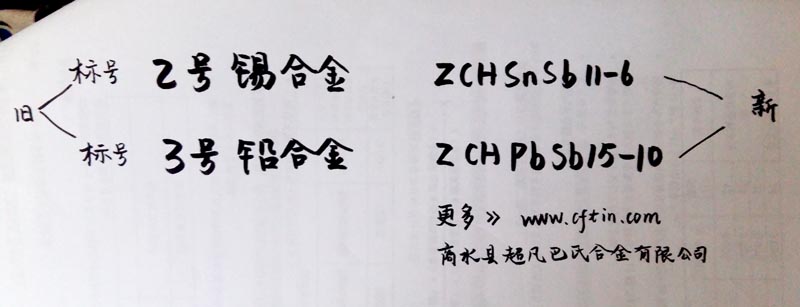 旧
标号 2号锡合金 ZCHSnSb11-6
标号 3号铅合金 ZCHPbSb15-10
新
更多》 www.cftin.com
商水县超凡巴氏合金有限公司